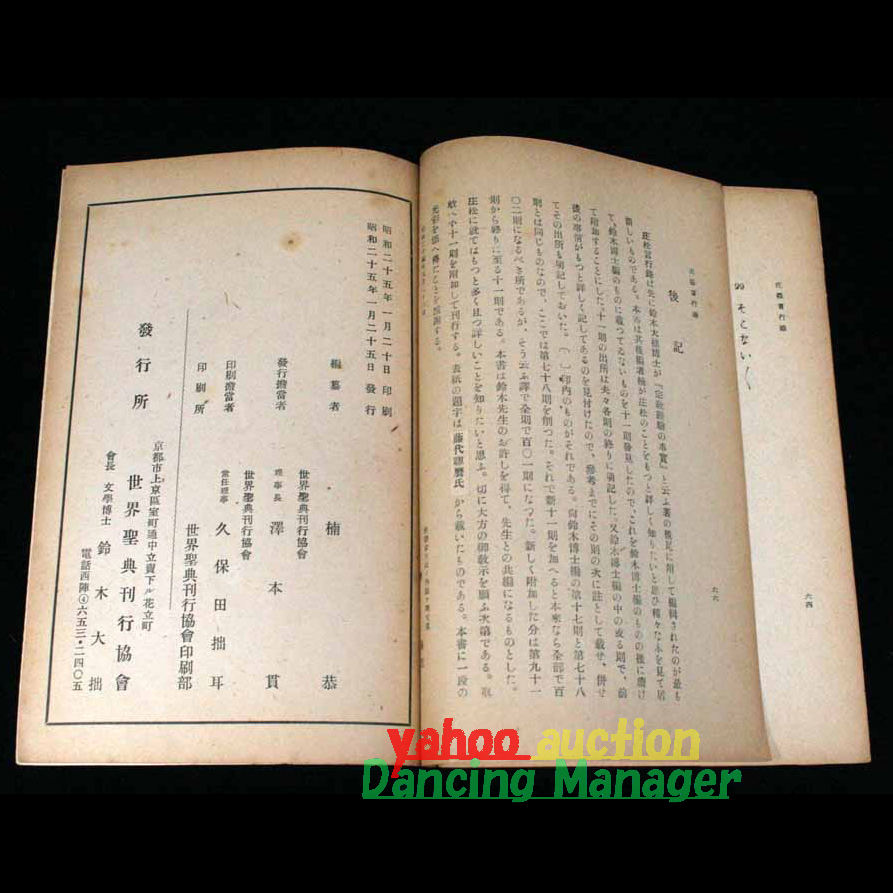 六四
99 そこないく
庄松言行録
六六
庄松言行録
後記
庄松言行錄は先に鈴木大拙博士が『宗教經驗の事實』と云ふ著の後尾に附して編輯されたのが最も
新しいものである。本書は其後編者楠が庄松のことをもつと詳しく知りたいと思ひ種々な本を見て居
て、鈴木博士編のものに載つてゐないものを十一則發見したので、これを鈴木博士編のものの後に續け
て附加することにした。十一則の出所は夫々各則の終りに明記した。又鈴木博士編の中の或る則で、前
後の事情がもつと詳しく記してあるのを見付けたので、參考までにその則の次に註として載せ、併せ
てその出所も明記しておいた。( )印内のものがそれである。尙鈴木博士編の第十七則と第七十八
則とは同じものなので、ここでは第七十八則を削つた。それで新十一則を加へると本來なら全部で百
〇二則になるべき所であるが、そう云ふ譯で全則で百〇一則になつた。新しく附加した分は第九十一
則から終りに至る十一則である。本書は鈴木先生のお許しを得て、先生との共編になるものとした。
庄松に就てはもつと多く且つ詳しいことを知りたいと思ふ。切に大方の御敎示を願ふ次第である。取
敢へず十一則を附加して刊行する。表紙の題字は 藤代 氏 から戴いたものである。本書に一段の
光彩を添へ得たことを感謝する。
昭和二十五年一月二十日 印刷
昭和二十五年一月二十五日 發行
編纂者 楠 恭
發行擔當者 世界聖典刊行協會 理事長 澤本 貫
印刷擔當者 世界聖典刊行協會 常任理事 久保田拙耳
印刷所 世界聖典刊行協會印刷部
發行所
京都市上京區室町通中立賣下ル花立町
世界聖典刊行協會
會長 文學博士 鈴木大拙
電話西陣④六五三・二四〇五
yahoo auction
Dancing Manager